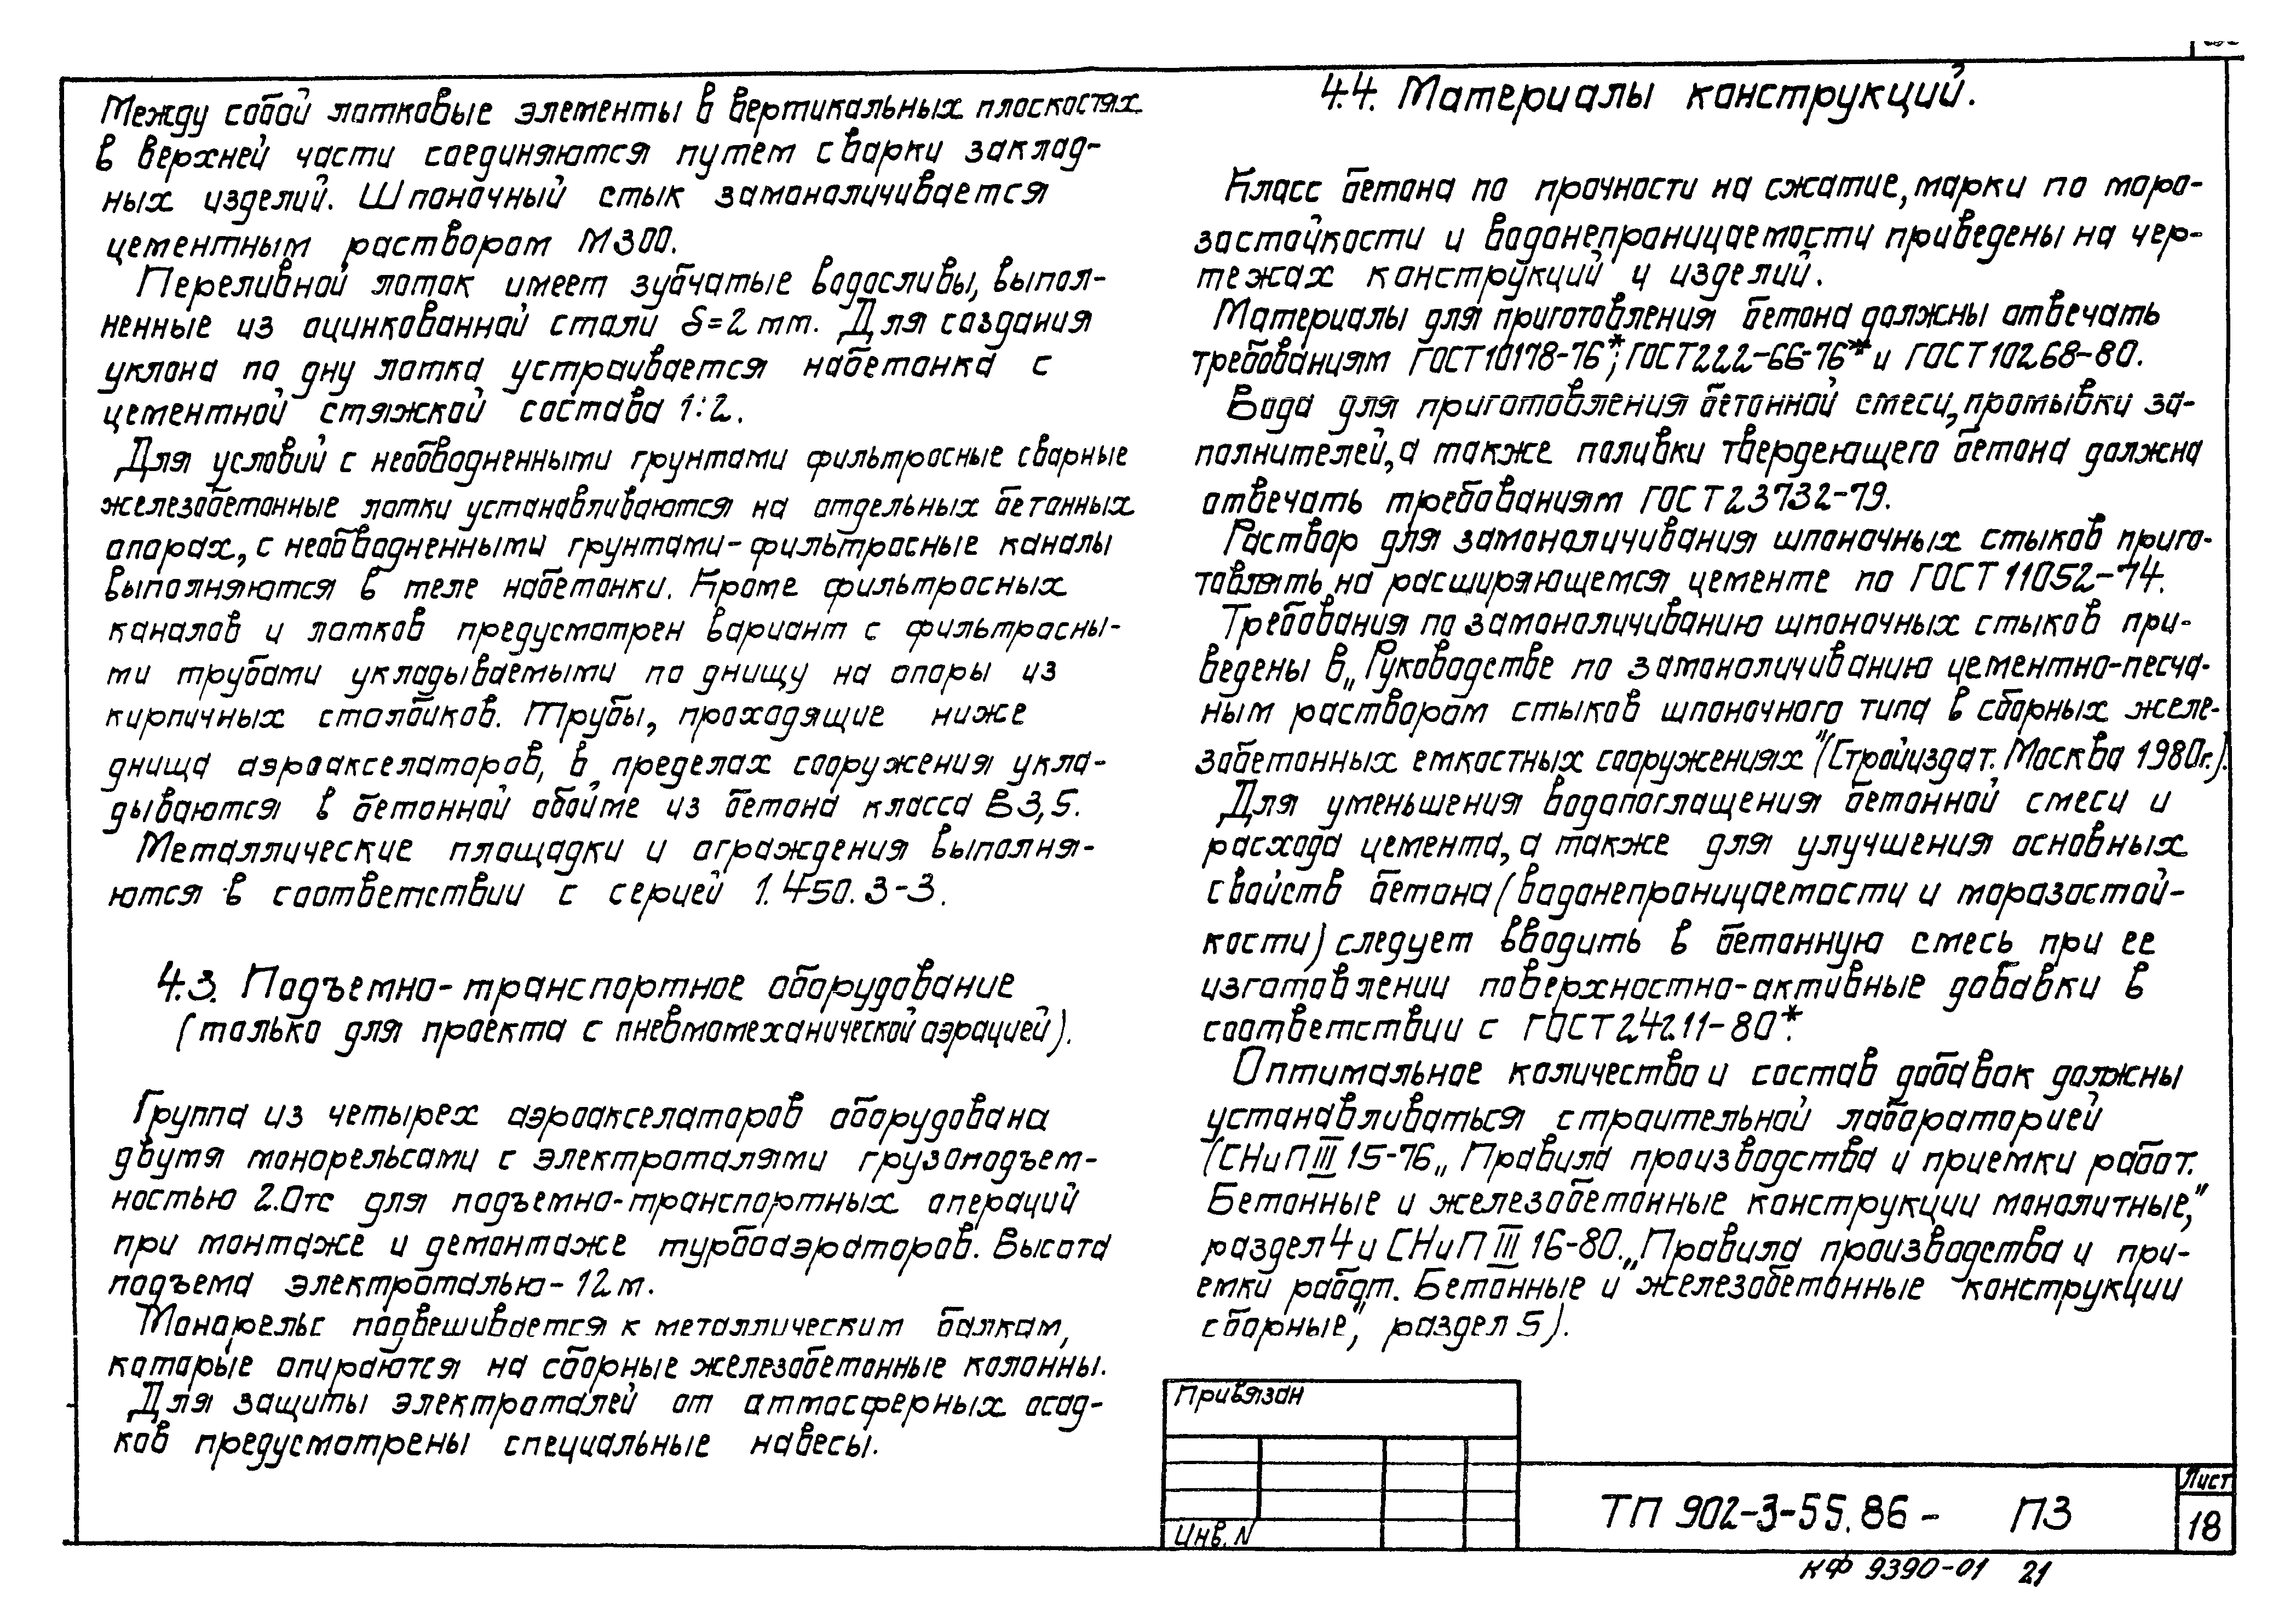 Между собой лотковые элементы в вертикальных плоскостях
в верхней части соединяются путем сварки заклад-
ных изделий. Шпоночный стык замоноличивается
цементным раствором М300.
Переливной лоток имеет зубчатые водосливы, выпол-
ненные из оцинкованной стали δ=2мм. Для создания
уклона по дну лотка устраивается набетонка с
цементной стяжкой состава 1:2.
Для условий с необводненными грунтами фильтросные сварные
железобетонные лотки устанавливаются на отдельных бетонных
опорах, с необводненными грунтами-фильтросные каналы
выполняются в теле набетонки. Кроме фильтросных
каналов и лотков предусмотрен вариант с фильтросны-
ми трубами укладываемыми по днищу на опоры из
кирпичных столбиков. Трубы, проходящие ниже
днища аэроакселаторов, в пределах сооружения укла-
дываются в бетонной обойме из бетона класса В3,5.
Металлические площадки и ограждения выполня-
ются в соответствии с серией 1.450.3-3.
4.3. Подъемно-транспортное оборудование
(только для проекта с пневмомеханической аэрацией).
Группа из четырех аэроакселаторов оборудована
двумя монорельсами с электроталями грузоподъем-
ностью 2.0тс для подъемно-транспортных операций
при монтаже и демонтаже турбоаэраторов. Высота
подъема электроталью-12м.
Монорельс подвешивается к металлическим балкам,
которые опираются на сборные железобетонные колонны.
Для защиты электроталей от аттмосферных осад-
ков предусмотрены специальные навесы.
4.4. Материалы конструкций.
Класс бетона по прочности на сжатие, марки по моро-
зостойкости и водонепроницаемости приведены на чер-
тежах конструкций и изделий.
Материалы для приготовления бетона должны отвечать
требованиям ГОСТ10178-76*; ГОСТ222-66-76* и ГОСТ10268-80.
Вода для приготовления бетонной смеси, промывки за-
полнителей, а также поливки твердеющего бетона должна
отвечать требованиям ГОСТ23732-79.
Раствор для замоноличивания шпоночных стыков приго-
товлять на расширяющемся цементе по ГОСТ11052-74.
Требования по замоноличиванию шпоночных стыков при-
ведены в „Руководстве по замоноличиванию цементно-песча-
ным раствором стыков шпоночного типа в сборных желе-
зобетонных емкостных сооружениях" (Стройиздат. Москва 1980г.).
Для уменьшения водопоглащения бетонной смеси и
расхода цемента, а также для улучшения основных
свойств бетона (водонепроницаемости и морозостой-
кости) следует вводить в бетонную смесь при ее
изготовлении поверхностно-активные добавки в
соответствии с ГОСТ24211-80*.
Оптимальное количество и состав добавок должны
устанавливаться строительной лабораторией
(СНиП III 15-76 „Правила производства и приемки работ.
Бетонные и железобетонные конструкции монолитные",
раздел 4 и СНиП III 16-80. „Правила производства и при-
емки работ. Бетонные и железобетонные конструкции
сборные", раздел 5).
Привязан
Инв. N
ТП 902-3-55.86 - ПЗ
Лист
18
КФ 9390-01 21